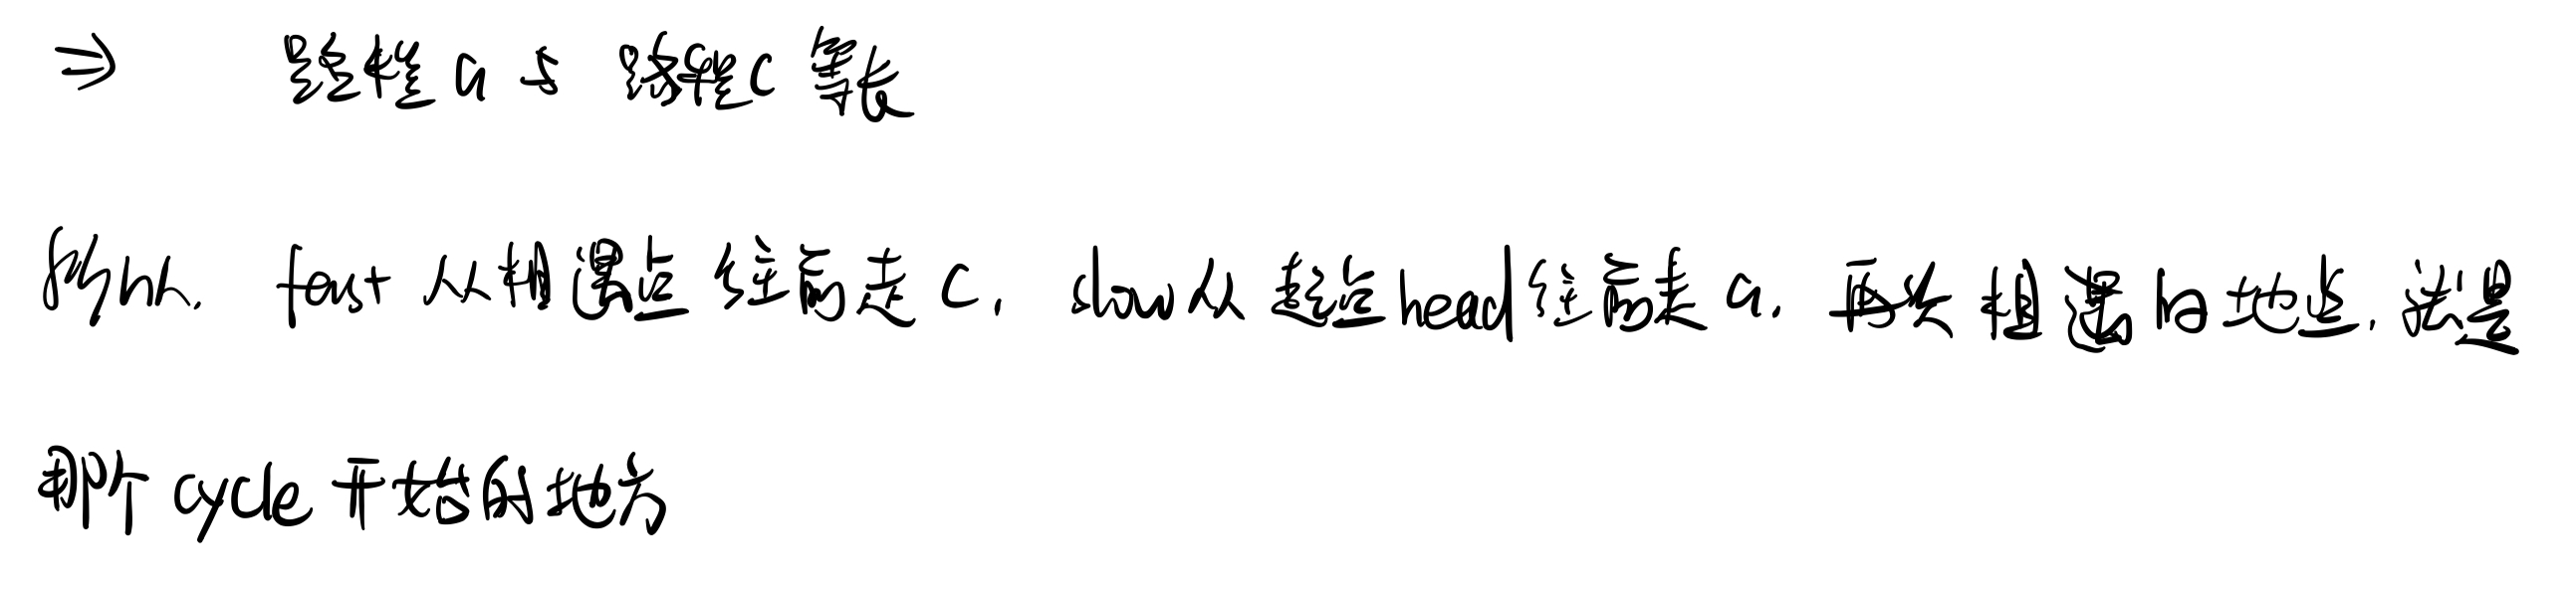 ⇒ 路程 a 与 路程 c 等长
所以, fast 从相遇点往前走 c, slow 从起点 head 往前走 a, 再次相遇的地点, 就是
那个 cycle 开始的地方